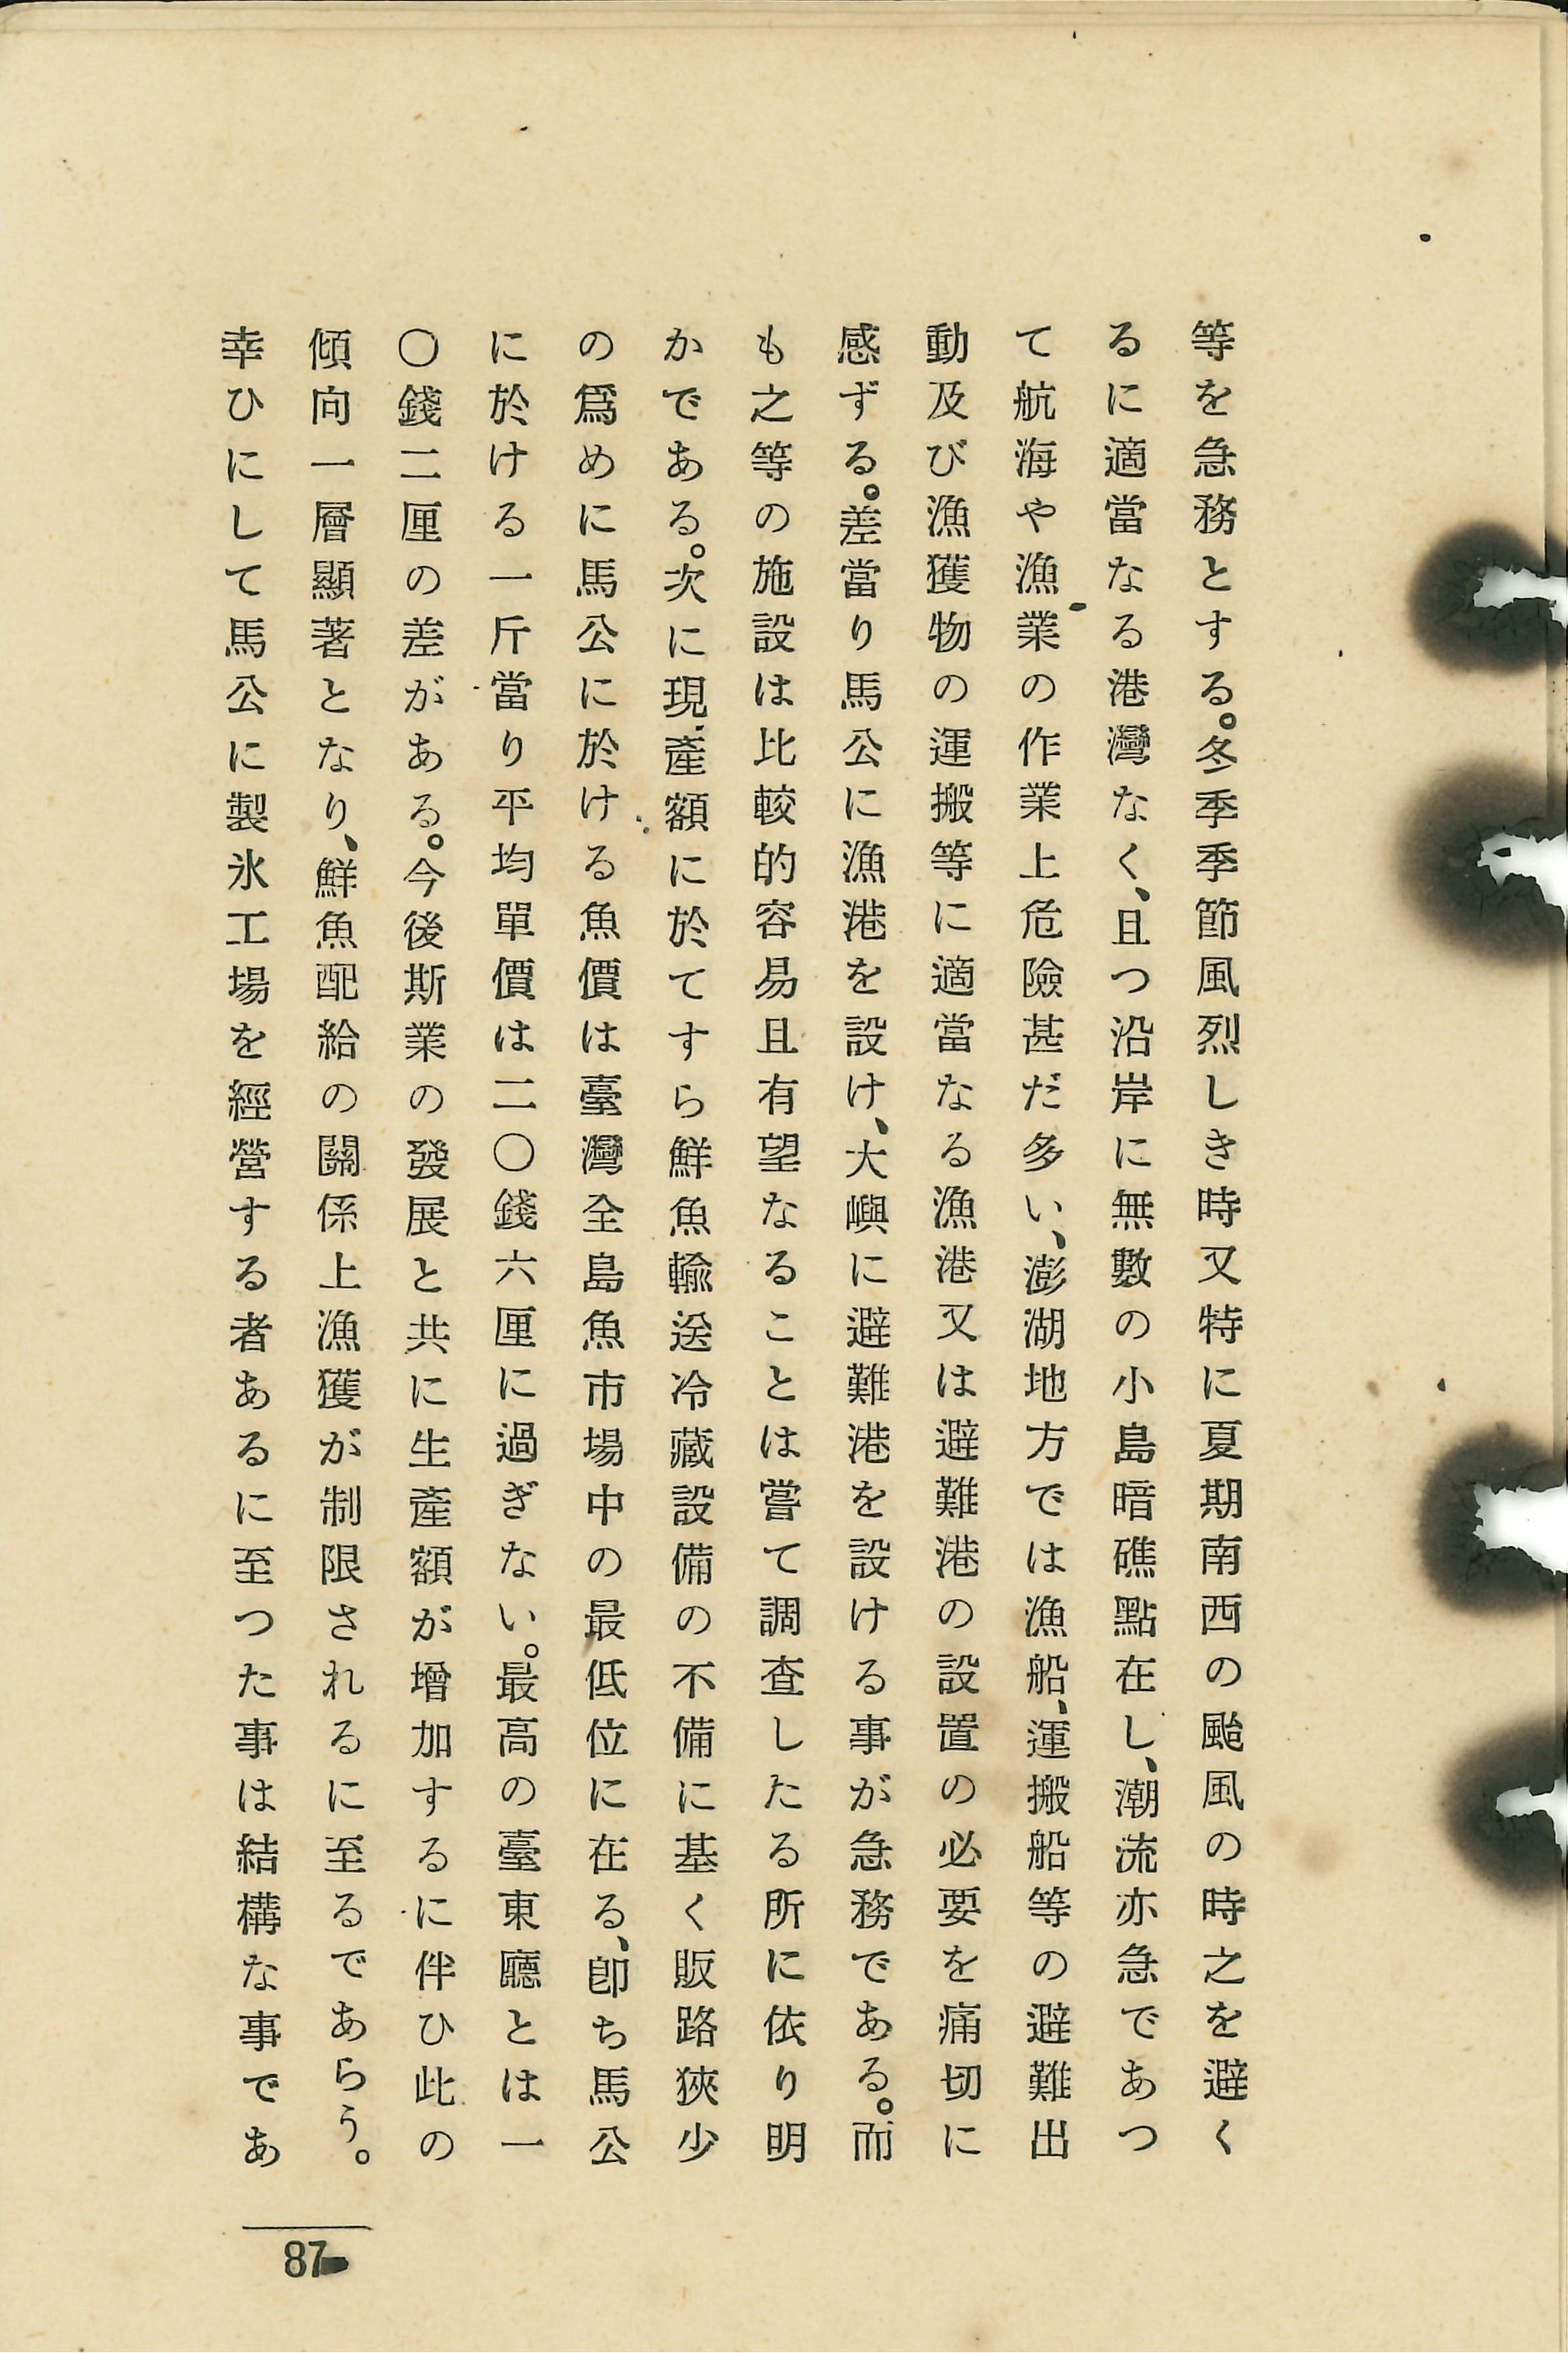 等を急務とする。冬季季節風烈しき時又特に夏期南西の颱風の時之を避く
るに適當なる港灣なく、且つ沿岸に無數の小島暗礁點在し、潮流亦急であつ
て航海や漁業の作業上危險甚だ多い、澎湖地方では漁船、運搬船等の避難出
動及び漁獲物の運搬等に適當なる漁港又は避難港の設置の必要を痛切に
感ずる。差當り馬公に漁港を設け、大嶼に避難港を設ける事が急務である。而
も之等の施設は比較的容易且有望なることは嘗て調査したる所に依り明
かである。次に現產額に於てすら鮮魚輸送冷藏設備の不備に基く販路狹少
の爲めに馬公に於ける魚價は臺灣全島魚市場中の最低位に在る、卽ち馬公
に於ける一斤當り平均單價は二〇錢六厘に過ぎない。最高の臺東廳とは一
〇錢二厘の差がある。今後斯業の發展と共に生產額が增加するに伴ひ此の
傾向一層顯著となり、鮮魚配給の關係上漁獲が制限されるに至るであらう。
幸ひにして馬公に製氷工場を經營する者あるに至つた事は結構な事であ
87